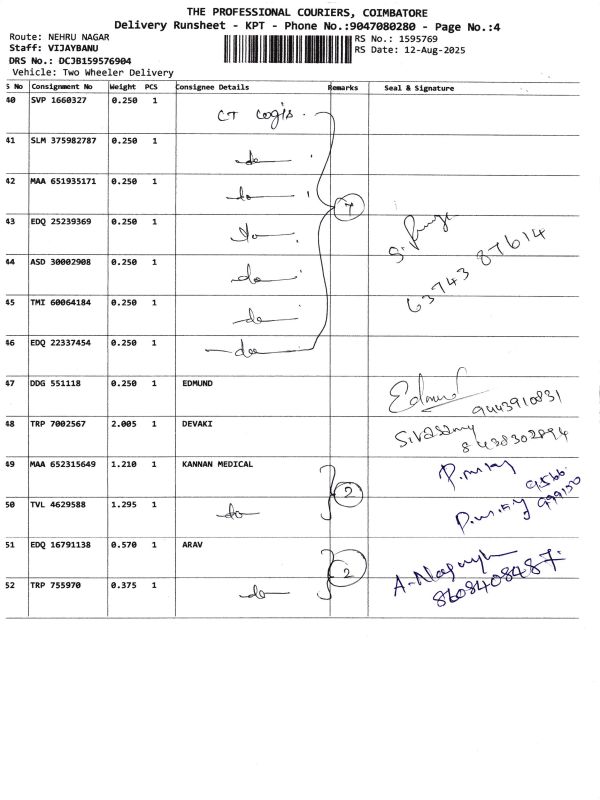 THE PROFESSIONAL COURIERS, COIMBATORE
Delivery Runsheet - KPT - Phone No.:9047080280 - Page No.:4
Route: NEHRU NAGAR
RS No.: 1595769
Staff: VIJAYBANU
RS Date: 12-Aug-2025
DRS No.: DCJB159576904
Vehicle: Two Wheeler Delivery
S No Consignment No Weight PCS Consignee Details Remarks Seal & Signature
40 SVP 1660327 0.250 1 CT
41 SLM 375982787 0.250 1 do
42 MAA 651935171 0.250 1 do 7
43 EDQ 25239369 0.250 1 do
44 ASD 30002908 0.250 1 do 63743 87614
45 TMI 60064184 0.250 1 do
46 EDQ 22337454 0.250 1 do
47 DDG 551118 0.250 1 EDMUND Edmund 9443910831
48 TRP 7002567 2.005 1 DEVAKI Sivasamy 8438302894
49 MAA 652315649 1.210 1 KANNAN MEDICAL 2
50 TVL 4629588 1.295 1 do
51 EDQ 16791138 0.570 1 ARAV 2
52 TRP 755970 0.375 1 do 8608408487